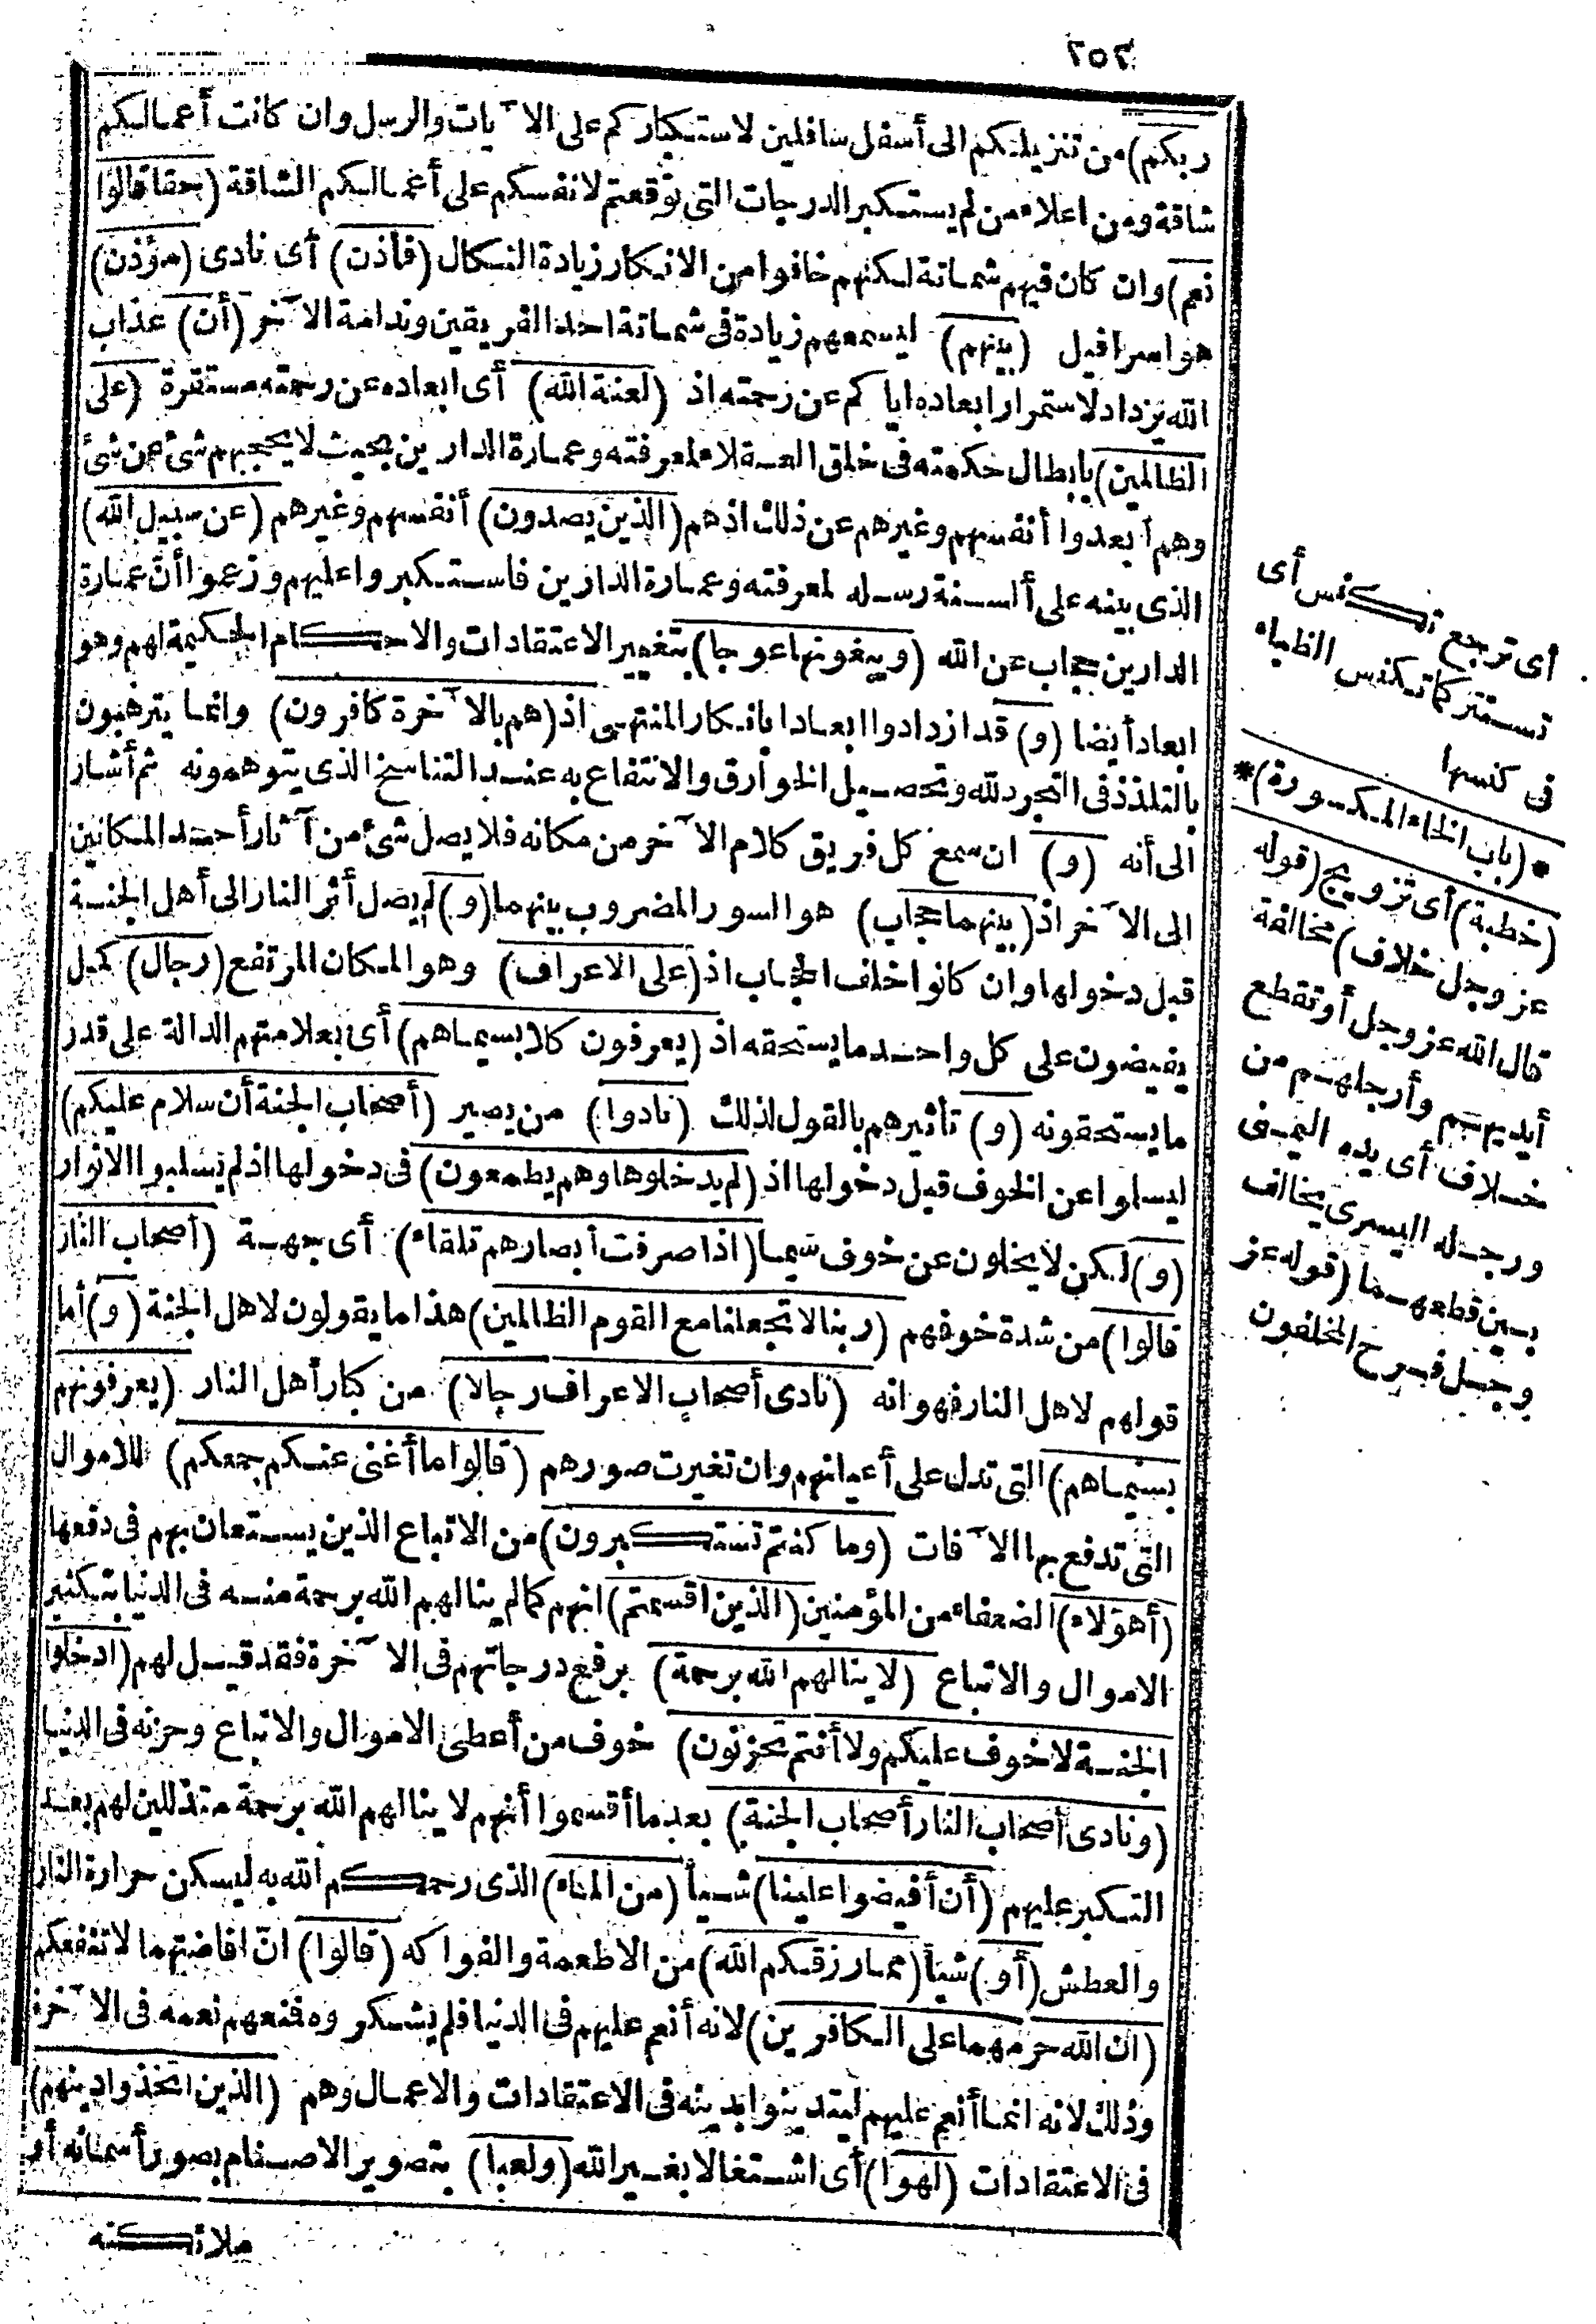 ٢٥٢
ربكم) من تنزيلكم الى أسفل سافلين لاستكباركم على الآيات والرسل وان كانت أعمالكم
شاقة ومن اعلاء من لم يستكبر الدرجات التى توقعتم لانفسكم على أعمالكم الشاقة (حقا قالوا
نعم) وان كان فيهم شماتة لكنهم خافوا من الانكار زيادة النكال (فأذن) أى نادى (مؤذن)
هو اسرافيل (بينهم) ليسمعهم زيادة فى شماتة احد الفريقين وندامة الآخر (أن) عذاب
الله يزداد لاستمرار ابعاده ايا كم عن رحمته اذ (لعنة الله) أى ابعاده عن رحمته مستقرة (على
الظالمين) بابطال حكمته فى خلق العمة لا لمعرفته وعمارة الدارين بحيث لا يحجبهم شئ عن شئ
وهم أبعدوا أنفسهم وغيرهم عن ذلك اذهم (الذين يصدون) أنفسهم وغيرهم (عن سبيل الله)
الذى بينه على ألسنة رسله لمعرفته وعمارة الدارين فاستكبروا عليهم وزعموا أن عمارة
الدارين حجاب عن الله (ويبغونها عوجا) بتغيير الاعتقادات والاحكام الحكيمة لهم وهو
ابعاد أيضا (و) قد ازدادوا ابعادا بانكار المنتهى اذ (هم بالآخرة كافرون) وانما يترهبون
بالتلذذ فى التجرد لله وتحصيل الخوارق والانتفاع به عند التناسخ الذى يتوهمونه ثم أشار
الى أنه (و) ان سمع كل فريق كلام الآخر من مكانه فلا يصل شئ من آثار أحد المكانين
الى الآخر اذ (بينهما حجاب) هو السور المضروب بينهما (و) لم يصل أثر النار الى أهل الجنة
قبل دخولها وان كانوا خلف الحجاب اذ (على الاعراف) وهو المكان المرتفع (رجال) كمل
يفيضون على كل واحد ما يستحقه اذ (يعرفون كلا بسيماهم) أى بعلامتهم الدالة على قدر
ما يستحقونه (و) تأثيرهم بالقول لذلك (نادوا) من يصير (أصحاب الجنة أن سلام عليكم)
ليسلوا عن الخوف قبل دخولها اذ (لم يدخلوها وهم يطمعون) فى دخولها اذ لم يسلبوا الانوار
(و) لكن لا يخلون عن خوف سيما (اذا صرفت أبصارهم تلقاء) أى جهة (أصحاب النار
قالوا) من شدة خوفهم (ربنا لا تجعلنا مع القوم الظالمين) هذا ما يقولون لاهل الجنة (و) أما
قولهم لاهل النار فهو انه (نادى أصحاب الاعراف رجالا) من كبار أهل النار (يعرفونهم
بسيماهم) التى تدل على أعيانهم وان تغيرت صورهم (قالوا ما أغنى عنكم جمعكم) للاموال
التى تدفع بها الآفات (وما كنتم تستكبرون) من الاتباع الذين يستعان بهم فى دفعها
(أهؤلاء) الضعفاء من المؤمنين (الذين اقسمتم) انهم كما لم ينالهم الله برحمة منه فى الدنيا بتكثير
الاموال والاتباع (لا ينالهم الله برحمة) برفع درجاتهم فى الآخرة فقد قيل لهم (ادخلوا
الجنة لا خوف عليكم ولا أنتم تحزنون) خوف من أعطى الاموال والاتباع وحزنه فى الدنيا
(ونادى أصحاب النار أصحاب الجنة) بعد ما أقسموا أنهم لا ينالهم الله برحمة متذللين لهم بعد
التكبر عليهم (أن أفيضوا علينا) شيأ (من الماء) الذى رحمكم الله به ليسكن حرارة النار
والعطش (أو) شيأ (مما رزقكم الله) من الاطعمة والفواكه (قالوا) ان افاضتهما لا تنفعكم
(ان الله حرمهما على الكافرين) لانه أنعم عليهم فى الدنيا فلم يشكروه فمنعهم نعمه فى الآخرة
وذلك لانه انما أنعم عليهم ليتدينوا بدينه فى الاعتقادات والاعمال وهم (الذين اتخذوا دينهم)
فى الاعتقادات (لهوا) أى اشتغالا بغير الله (ولعبا) بتصوير الاصنام بصور أسمائه أو
ملائكته
أى ترجع تكنس أى
تستتر كما تكنس الظباء
فى كنسها
*(باب الخاء المكسورة)*
(خطبة) أى تزويج (قوله
عز وجل خلاف) مخالفة
قال الله عز وجل أو تقطع
أيديهم وأرجلهم من
خلاف أى يده اليمنى
ورجله اليسرى يخالف
بين قطعهما (قوله عز
وجل فرح المخلفون